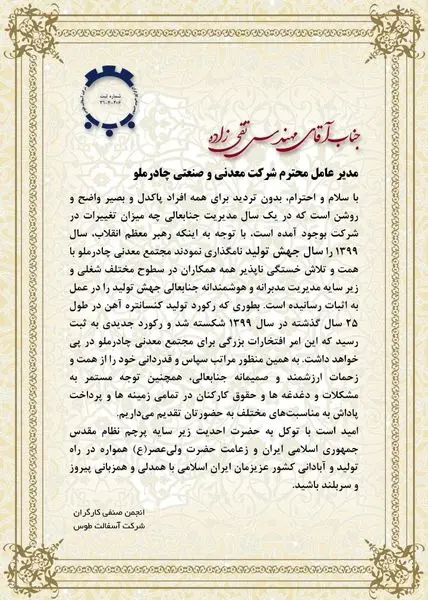 شماره ثبت
۳۱-۴-۲۰۶
جناب آقای مهندس تقی زاده
مدیر عامل محترم شرکت معدنی و صنعتی چادرملو
با سلام و احترام، بدون تردید برای همه افراد پاکدل و بصیر واضح و
روشن است که در یک سال مدیریت جنابعالی چه میزان تغییرات در
شرکت بوجود آمده است، با توجه به اینکه رهبر معظم انقلاب، سال
۱۳۹۹ را سال جهش تولید نامگذاری نمودند مجتمع معدنی چادرملو با
همت و تلاش خستگی ناپذیر همه همکاران در سطوح مختلف شغلی و
زیر سایه مدیریت مدبرانه و هوشمندانه جنابعالی جهش تولید را در عمل
به اثبات رسانیده است. بطوری که رکورد تولید کنسانتره آهن در طول
۲۵ سال گذشته در سال ۱۳۹۹ شکسته شد و رکورد جدیدی به ثبت
رسید که این امر افتخارات بزرگی برای مجتمع معدنی چادرملو در پی
خواهد داشت. به همین منظور مراتب سپاس و قدردانی خود را از همت و
زحمات ارزشمند و صمیمانه جنابعالی، همچنین توجه مستمر به
مشکلات و دغدغه ها و حقوق کارکنان در تمامی زمینه ها و پرداخت
پاداش به مناسبت‌های مختلف به حضورتان تقدیم می‌داریم.
امید است با توکل به حضرت احدیت زیر سایه پرچم نظام مقدس
جمهوری اسلامی ایران و زعامت حضرت ولی‌عصر(ع) همواره در راه
تولید و آبادانی کشور عزیزمان ایران اسلامی با همدلی و همزبانی پیروز
و سربلند باشید.
انجمن صنفی کارگران
شرکت آسفالت طوس